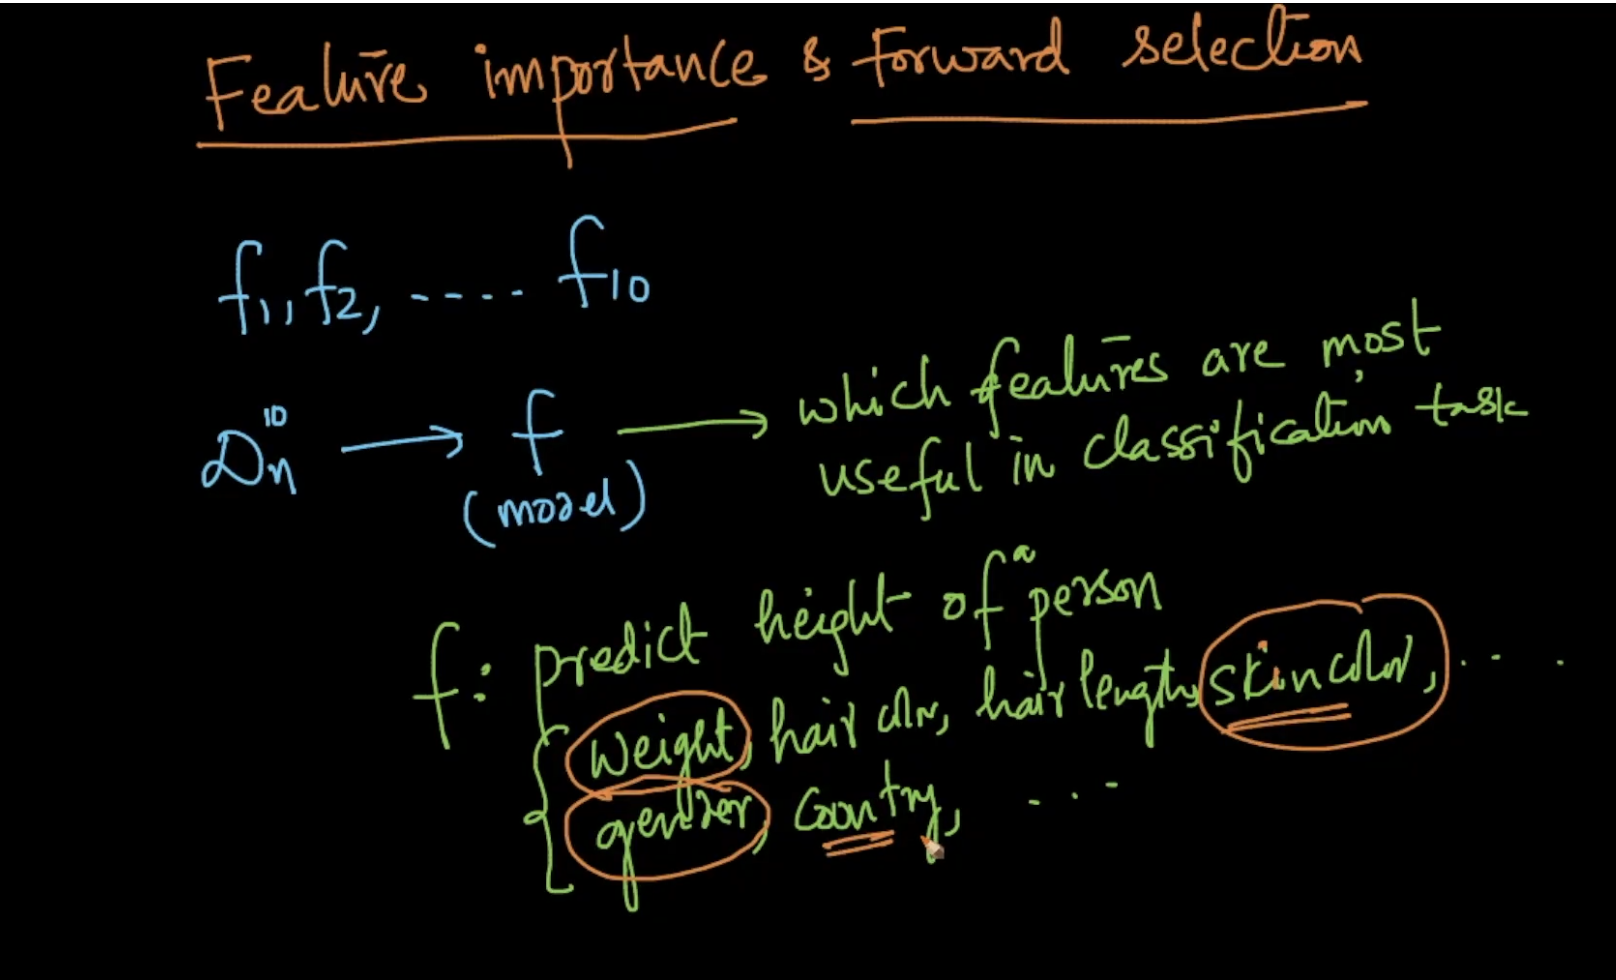 Feature importance & forward selection
f1, f2, ---- f10
Dn^10 → f → which features are most
(model) useful in classification task
f: predict height of a person
weight, hair color, hair length, skin color, ...
gender, country, ...